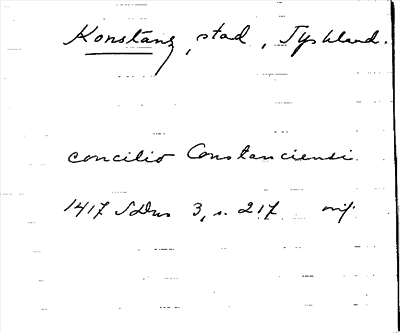 Konstanz, stad, Tyskland.
concilio Constanciensi
1417 SDns 3, s. 217 orig.